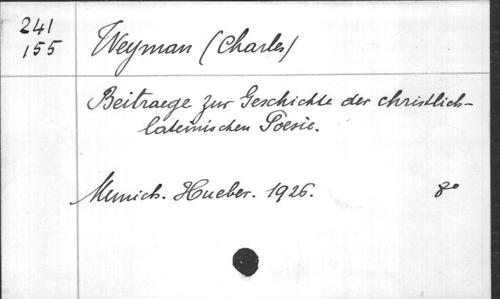 241
155
Weyman (Charles)
Beitraege zur Geschichte der christlich-
lateinischen Poesie.
Munich. Hueber. 1926. 8°